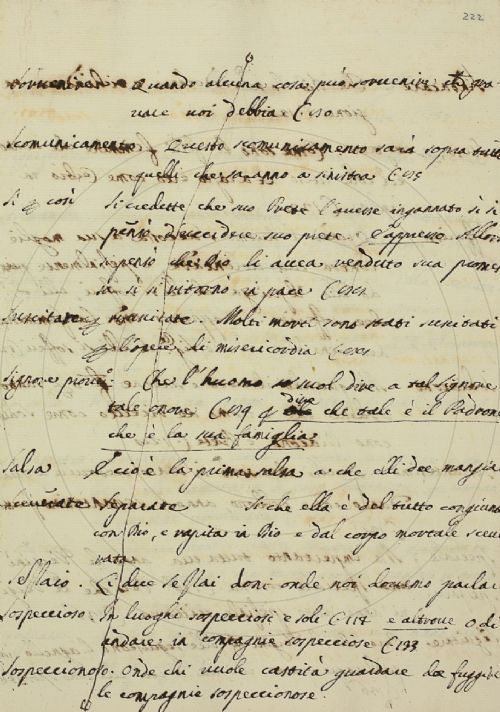 222
Sovvenire Quando alcuna cosa può sovvenire
noi debbia C 110
Scomunicamento Questo scomunicamento sarà sopra tutti
quelli che saranno a sinistra
Sì così Si credette che suo Prete l'avesse ingannato si si
pensò d'uccidere suo prete e appresso
si pensò che Dio li avea venduto sua promes
sa si si ritornò in pace
Suscitare risuscitare. Molti morti sono stati suscitati
l'opere di misericordia
Signore Che l'huomo suol dire a tal signore
tale onore dire che tale è il Padrone
che è la sua famiglia
Salsa E ciò è la prima salsa a che elli dee mangia
Sceverate Separate Si che ella è del tutto congiunta
con Dio, e rapita in Dio e dal corpo mortale scev
rata
doni onde noi dovemo parlar
Sospeccioso. In luoghi sospecciosi e soli C 117 e altrove O di
andare in compagnie sospecciose C 133
Sospeccionoso. Onde chi vuole castità guardare dee fuggire
le compagnie sospeccionose.